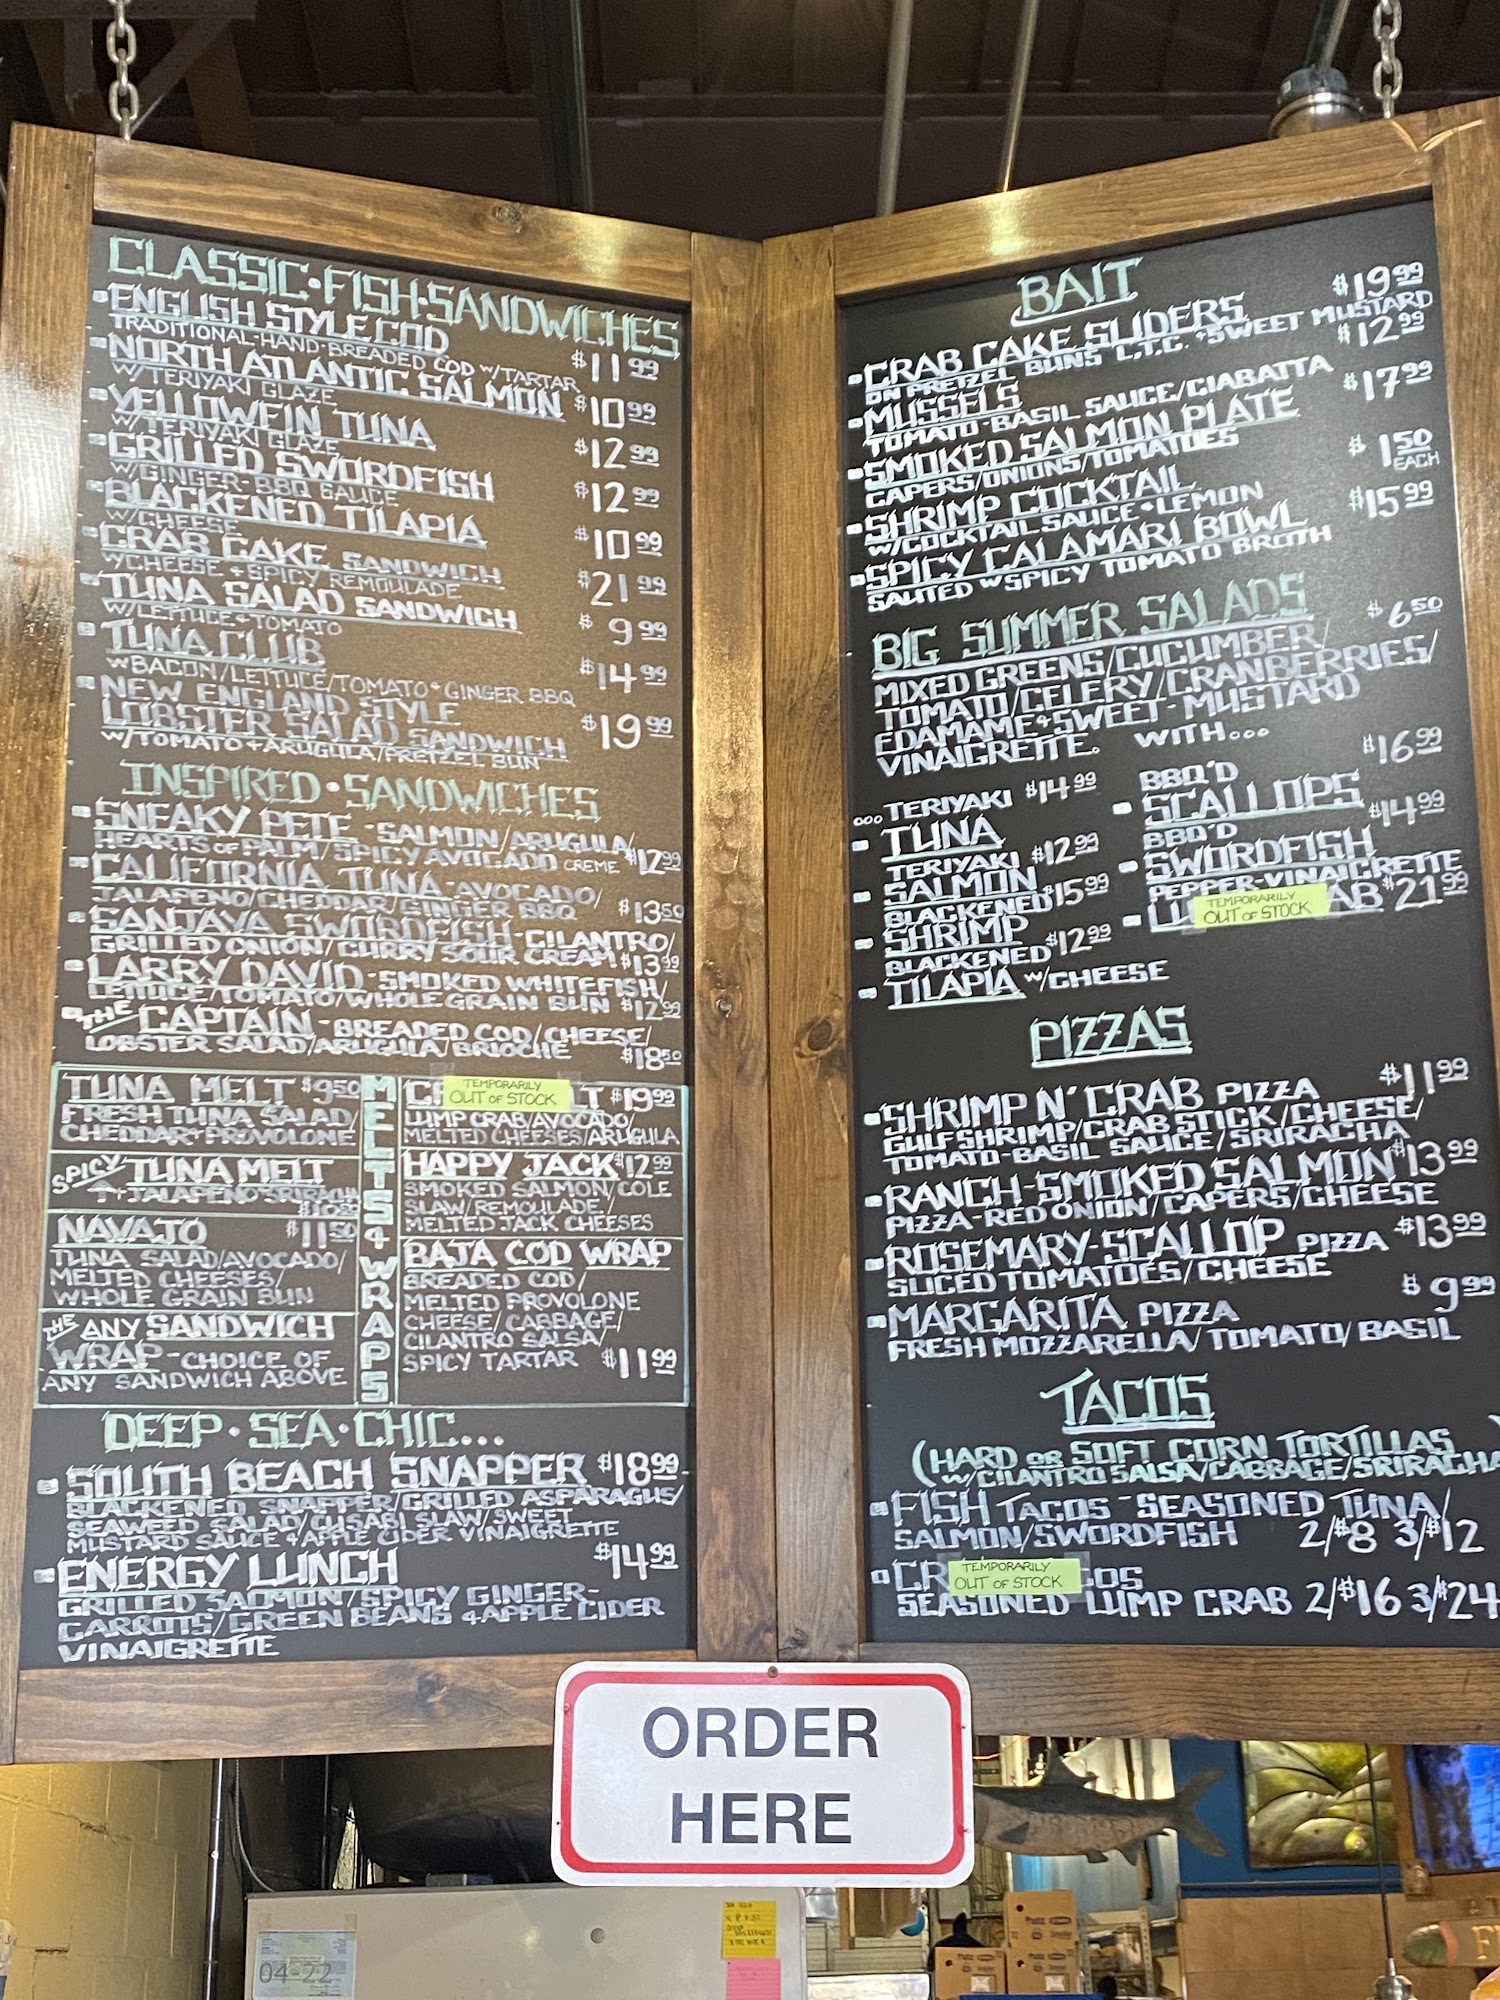 CLASSIC·FISH·SANDWICHES
ENGLISH STYLE COD
TRADITIONAL-HAND-BREADED COD W/TARTAR $11.99
NORTH ATLANTIC SALMON $10.99
W/TERIYAKI GLAZE
YELLOWFIN TUNA $12.99
W/TERIYAKI GLAZE
GRILLED SWORDFISH $12.99
W/GINGER-BBQ SAUCE
BLACKENED TILAPIA $10.99
W/CHEESE
CRAB CAKE SANDWICH $21.99
W/CHEESE + SPICY REMOULADE
TUNA SALAD SANDWICH $9.99
W/LETTUCE+TOMATO
TUNA CLUB $14.99
W BACON/LETTUCE/TOMATO+GINGER BBQ
NEW ENGLAND STYLE
LOBSTER SALAD SANDWICH $19.99
W/TOMATO+ARUGULA/PRETZEL BUN
INSPIRED·SANDWICHES
SNEAKY PETE -SALMON/ARUGULA/
HEARTS OF PALM/SPICY AVOCADO CREME $12.99
CALIFORNIA TUNA-AVOCADO/
JALAPENO/CHEDDAR/GINGER BBQ $13.50
SANJAYA SWORDFISH-CILANTRO/
GRILLED ONION/CURRY SOUR CREAM $13.99
LARRY DAVID-SMOKED WHITEFISH/
LETTUCE/TOMATO/WHOLE GRAIN BUN $12.99
THE CAPTAIN-BREADED COD/CHEESE/
LOBSTER SALAD/ARUGULA/BRIOCHE $18.50
MELTS + WRAPS
TUNA MELT $9.50
FRESH TUNA SALAD/
CHEDDAR+PROVOLONE
SPICY TUNA MELT
↑+JALAPENO SRIRACHA
NAVAJO $11.50
TUNA SALAD/AVOCADO/
MELTED CHEESES/
WHOLE GRAIN BUN
THE ANY SANDWICH
WRAP-CHOICE OF
ANY SANDWICH ABOVE
TEMPORARILY
OUT OF STOCK
$19.99
LUMP CRAB/AVOCADO/
MELTED CHEESES/ARUGULA
HAPPY JACK $12.99
SMOKED SALMON/COLE
SLAW/REMOULADE/
MELTED JACK CHEESES
BAJA COD WRAP
BREADED COD/
MELTED PROVOLONE
CHEESE/CABBAGE/
CILANTRO SALSA/
SPICY TARTAR $11.99
DEEP·SEA·CHIC...
SOUTH BEACH SNAPPER $18.99
BLACKENED SNAPPER/GRILLED ASPARAGUS/
SEAWEED SALAD/CUSABI SLAW/SWEET
MUSTARD SAUCE+APPLE CIDER VINAIGRETTE
ENERGY LUNCH $14.99
GRILLED SALMON/SPICY GINGER-
CARROTS/GREEN BEANS +APPLE CIDER
VINAIGRETTE
BAIT
CRAB CAKE SLIDERS $19.99
ON PRETZEL BUNS L.T.C. +SWEET MUSTARD
MUSSELS $12.99
TOMATO-BASIL SAUCE/CIABATTA
SMOKED SALMON PLATE $17.99
CAPERS/ONIONS/TOMATOES
SHRIMP COCKTAIL $1.50 EACH
W/COCKTAIL SAUCE+LEMON
SPICY CALAMARI BOWL $15.99
SAUTED W SPICY TOMATO BROTH
BIG SUMMER SALADS $6.50
MIXED GREENS/CUCUMBER/
TOMATO/CELERY/CRANBERRIES/
EDAMAME+SWEET-MUSTARD
VINAIGRETTE. WITH...
...TERIYAKI $14.99
TUNA
TERIYAKI $12.99
SALMON
BLACKENED $15.99
SHRIMP
BLACKENED $12.99
TILAPIA W/CHEESE
BBQ'D $16.99
SCALLOPS
BBQ'D $14.99
SWORDFISH
PEPPER-VINAIGRETTE
LU TEMPORARILY OUT OF STOCK AB $21.99
PIZZAS
SHRIMP N' CRAB PIZZA $11.99
GULF SHRIMP/CRAB STICK/CHEESE/
TOMATO-BASIL SAUCE/SRIRACHA
RANCH-SMOKED SALMON $13.99
PIZZA-RED ONION/CAPERS/CHEESE
ROSEMARY-SCALLOP PIZZA $13.99
SLICED TOMATOES/CHEESE
MARGARITA PIZZA $9.99
FRESH MOZZARELLA/TOMATO/BASIL
TACOS
(HARD OR SOFT CORN TORTILLAS
W/CILANTRO SALSA/CABBAGE/SRIRACHA)
FISH TACOS-SEASONED TUNA/
SALMON/SWORDFISH 2/$8 3/$12
CR TEMPORARILY OUT OF STOCK COS
SEASONED LUMP CRAB 2/$16 3/$24
ORDER
HERE
04-22